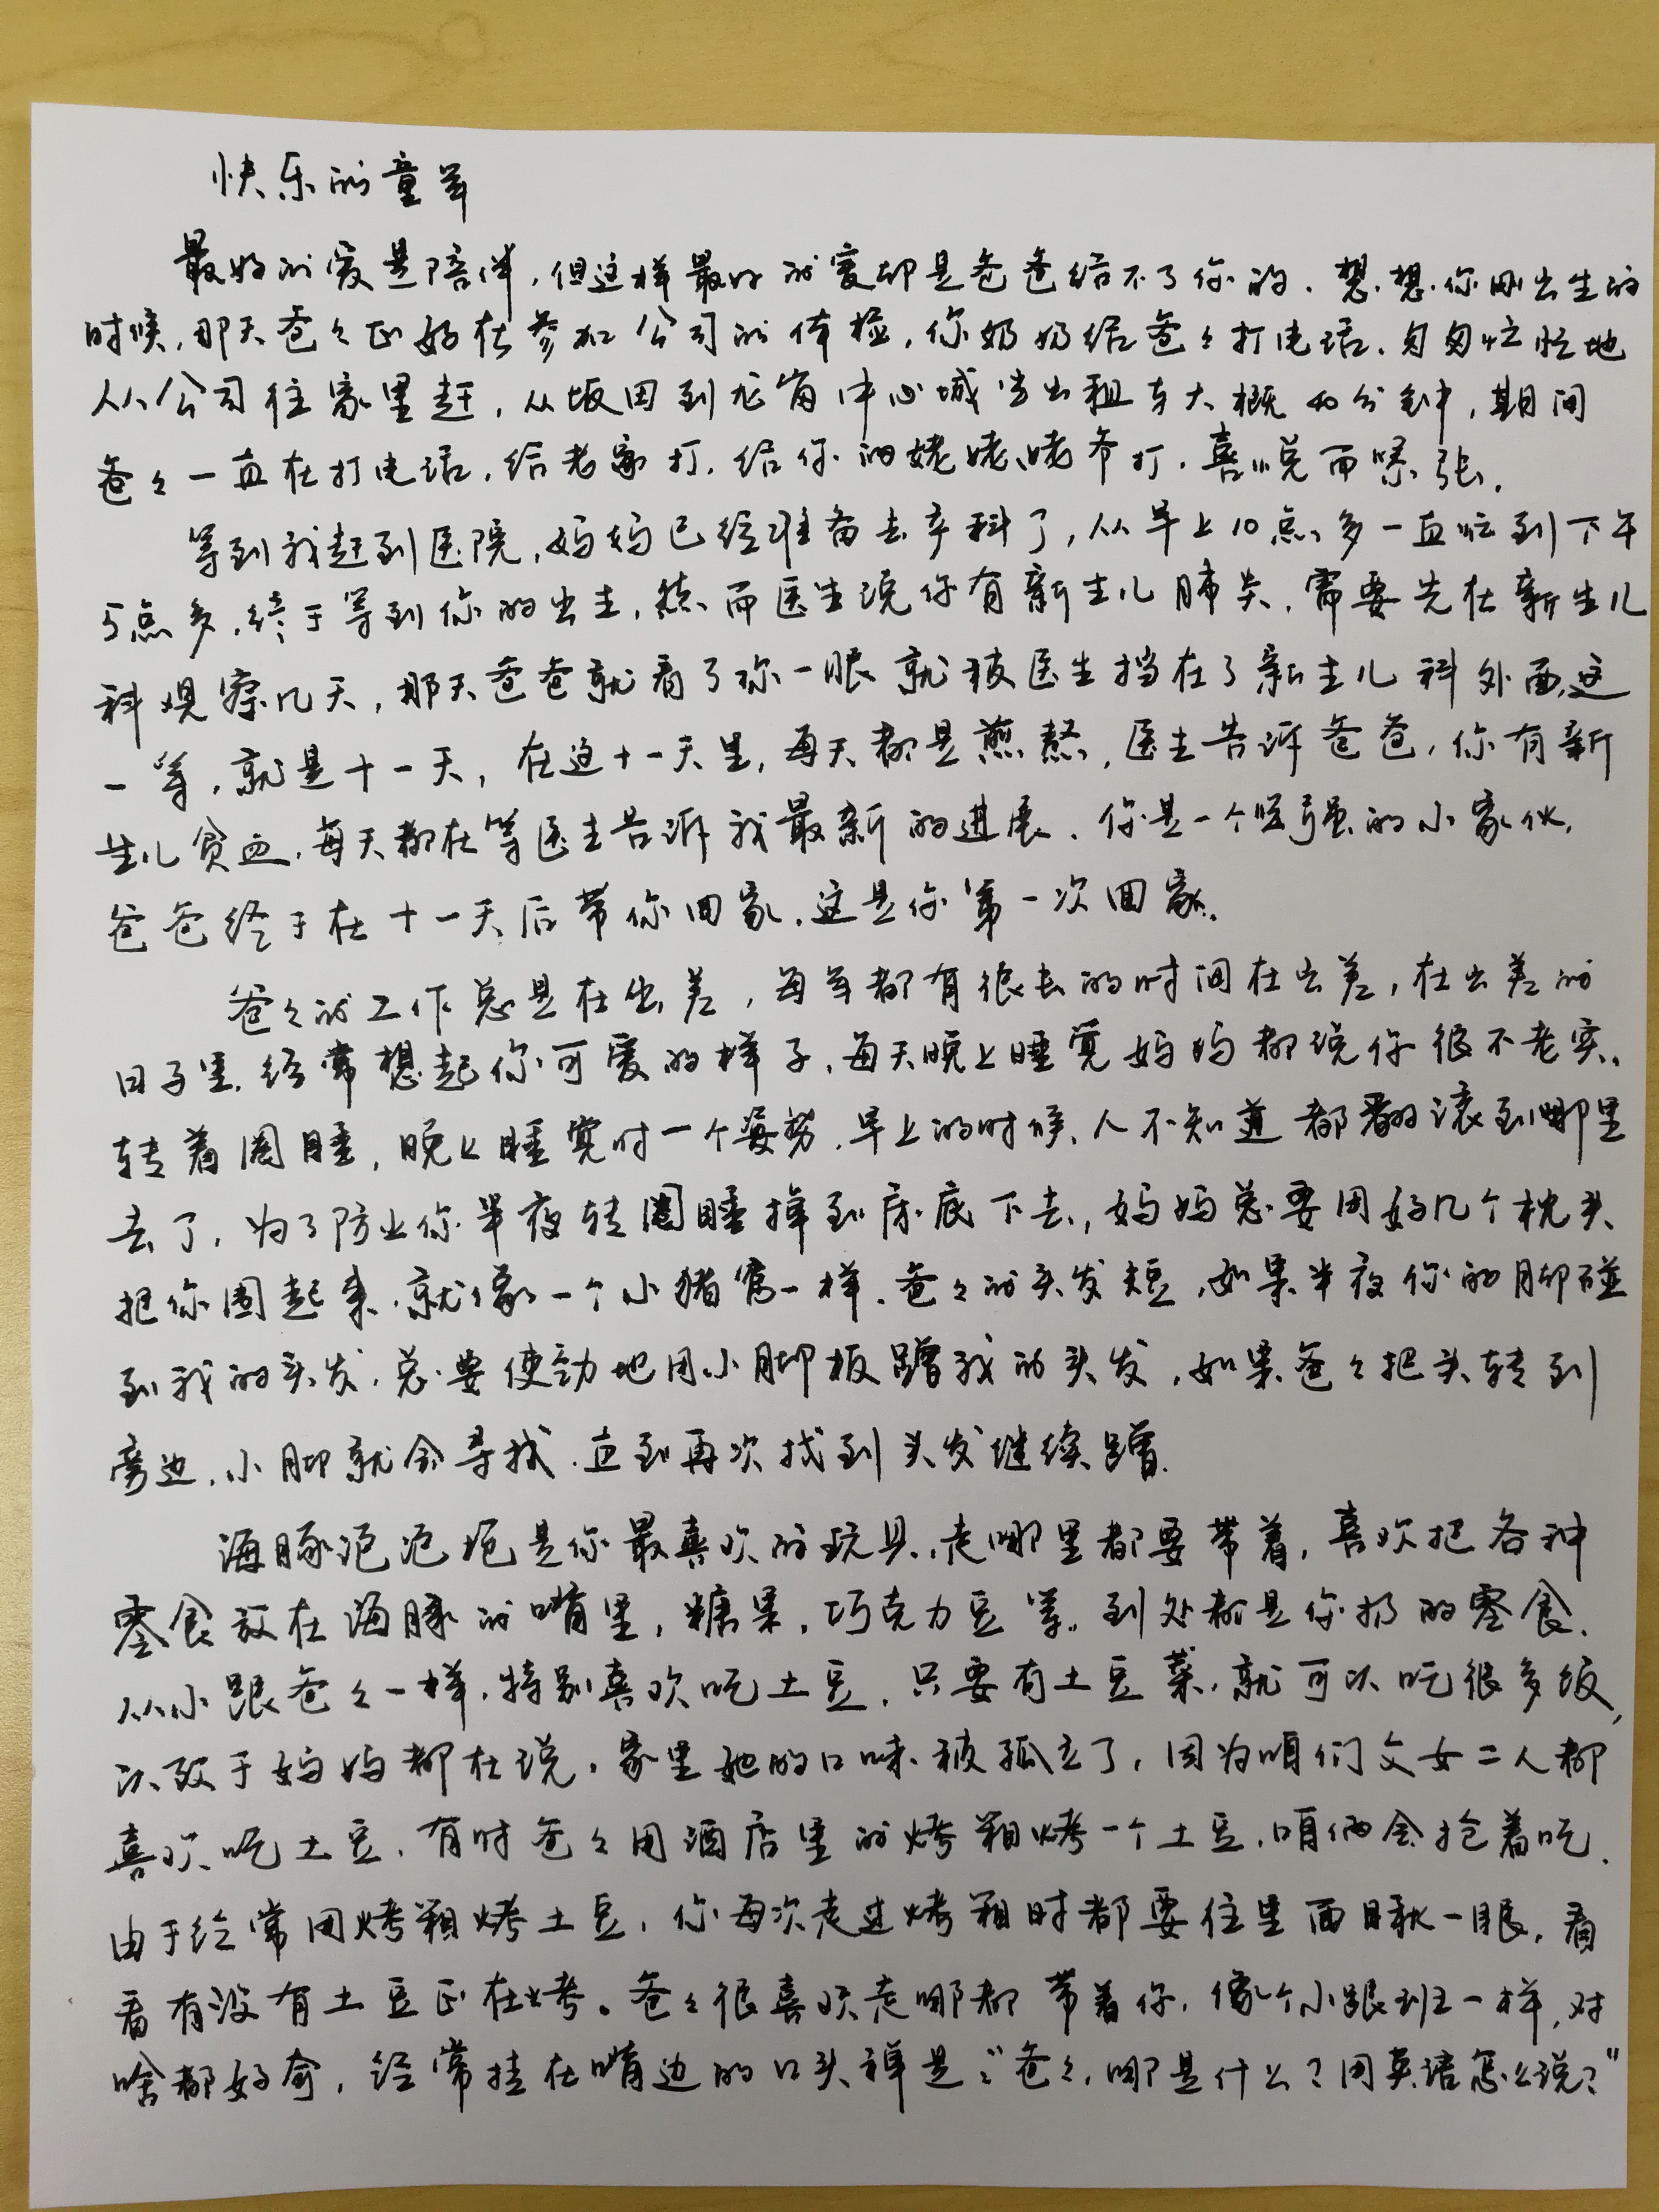 快乐的童年
最好的爱是陪伴，但这样最好的爱却是爸爸给不了你的．想想你刚出生的
时候，那天爸々正好在参加公司的体检，你奶奶给爸々打电话．匆匆忙忙地
从公司往家里赶，从坂田到龙岗中心城坐出租车大概40分钟，期间
爸々一直在打电话，给老家打．给你的姥姥、姥爷打．喜悦而紧张．
等到我赶到医院，妈妈已经准备去产科了，从早上10点多一直忙到下午
5点多，终于等到你的出生，然而医生说你有新生儿肺炎，需要先在新生儿
科观察几天，那天爸爸就看了你一眼就被医生挡在了新生儿科外面，这
一等，就是十一天，在这十一天里，每天都是煎熬，医生告诉爸爸，你有新
生儿贫血，每天都在等医生告诉我最新的进展．你是一个坚强的小家伙，
爸爸终于在十一天后带你回家．这是你第一次回家．
爸々的工作总是在出差，每年都有很长的时间在出差，在出差的
日子里，经常想起你可爱的样子，每天晚上睡觉妈妈都说你很不老实、
转着圈睡，晚上睡觉时一个姿势，早上的时候、人不知道都翻滚到哪里
去了，为了防止你半夜转圈睡掉到床底下去，妈妈总要用好几个枕头
把你围起来，就像一个小猪窝一样．爸々的头发短，如果半夜你的脚碰
到我的头发，总要使劲地用小脚板蹭我的头发，如果爸々把头转到
旁边，小脚就会寻找．直到再次找到头发继续蹭．
海豚泡泡炮是你最喜欢的玩具，走哪里都要带着，喜欢把各种
零食放在海豚的嘴里，糖果，巧克力豆等。到处都是你扔的零食．
从小跟爸々一样，特别喜欢吃土豆，只要有土豆菜，就可以吃很多饭，
以致于妈妈都在说，家里她的口味被孤立了，因为咱们父女二人都
喜欢吃土豆．有时爸々用酒店里的烤箱烤一个土豆，咱俩会抢着吃．
由于经常用烤箱烤土豆，你每次走进烤箱时都要往里面瞅一眼，看
看有没有土豆正在烤。爸々很喜欢走哪都带着你，像个小跟班一样，对
啥都好奇，经常挂在嘴边的口头禅是：“爸々，哪是什么？用英语怎么说？”